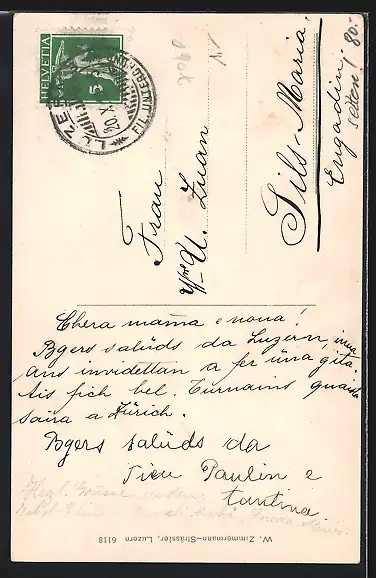 HELVETIA
5
LUZERN
FIL.
Frau
U. Zuan
Sils-Maria.
Engadin
80.-
Chera mamma e nona!
Bgers salüds da Luzern,
ans invidettan a fer üna gita.
Ais fich bel. Turnains quaista
saira a Zürich.
Bgers salüds da
Tieu Paulin e
tantina.
W. Zimmermann-Strässler, Luzern 6118